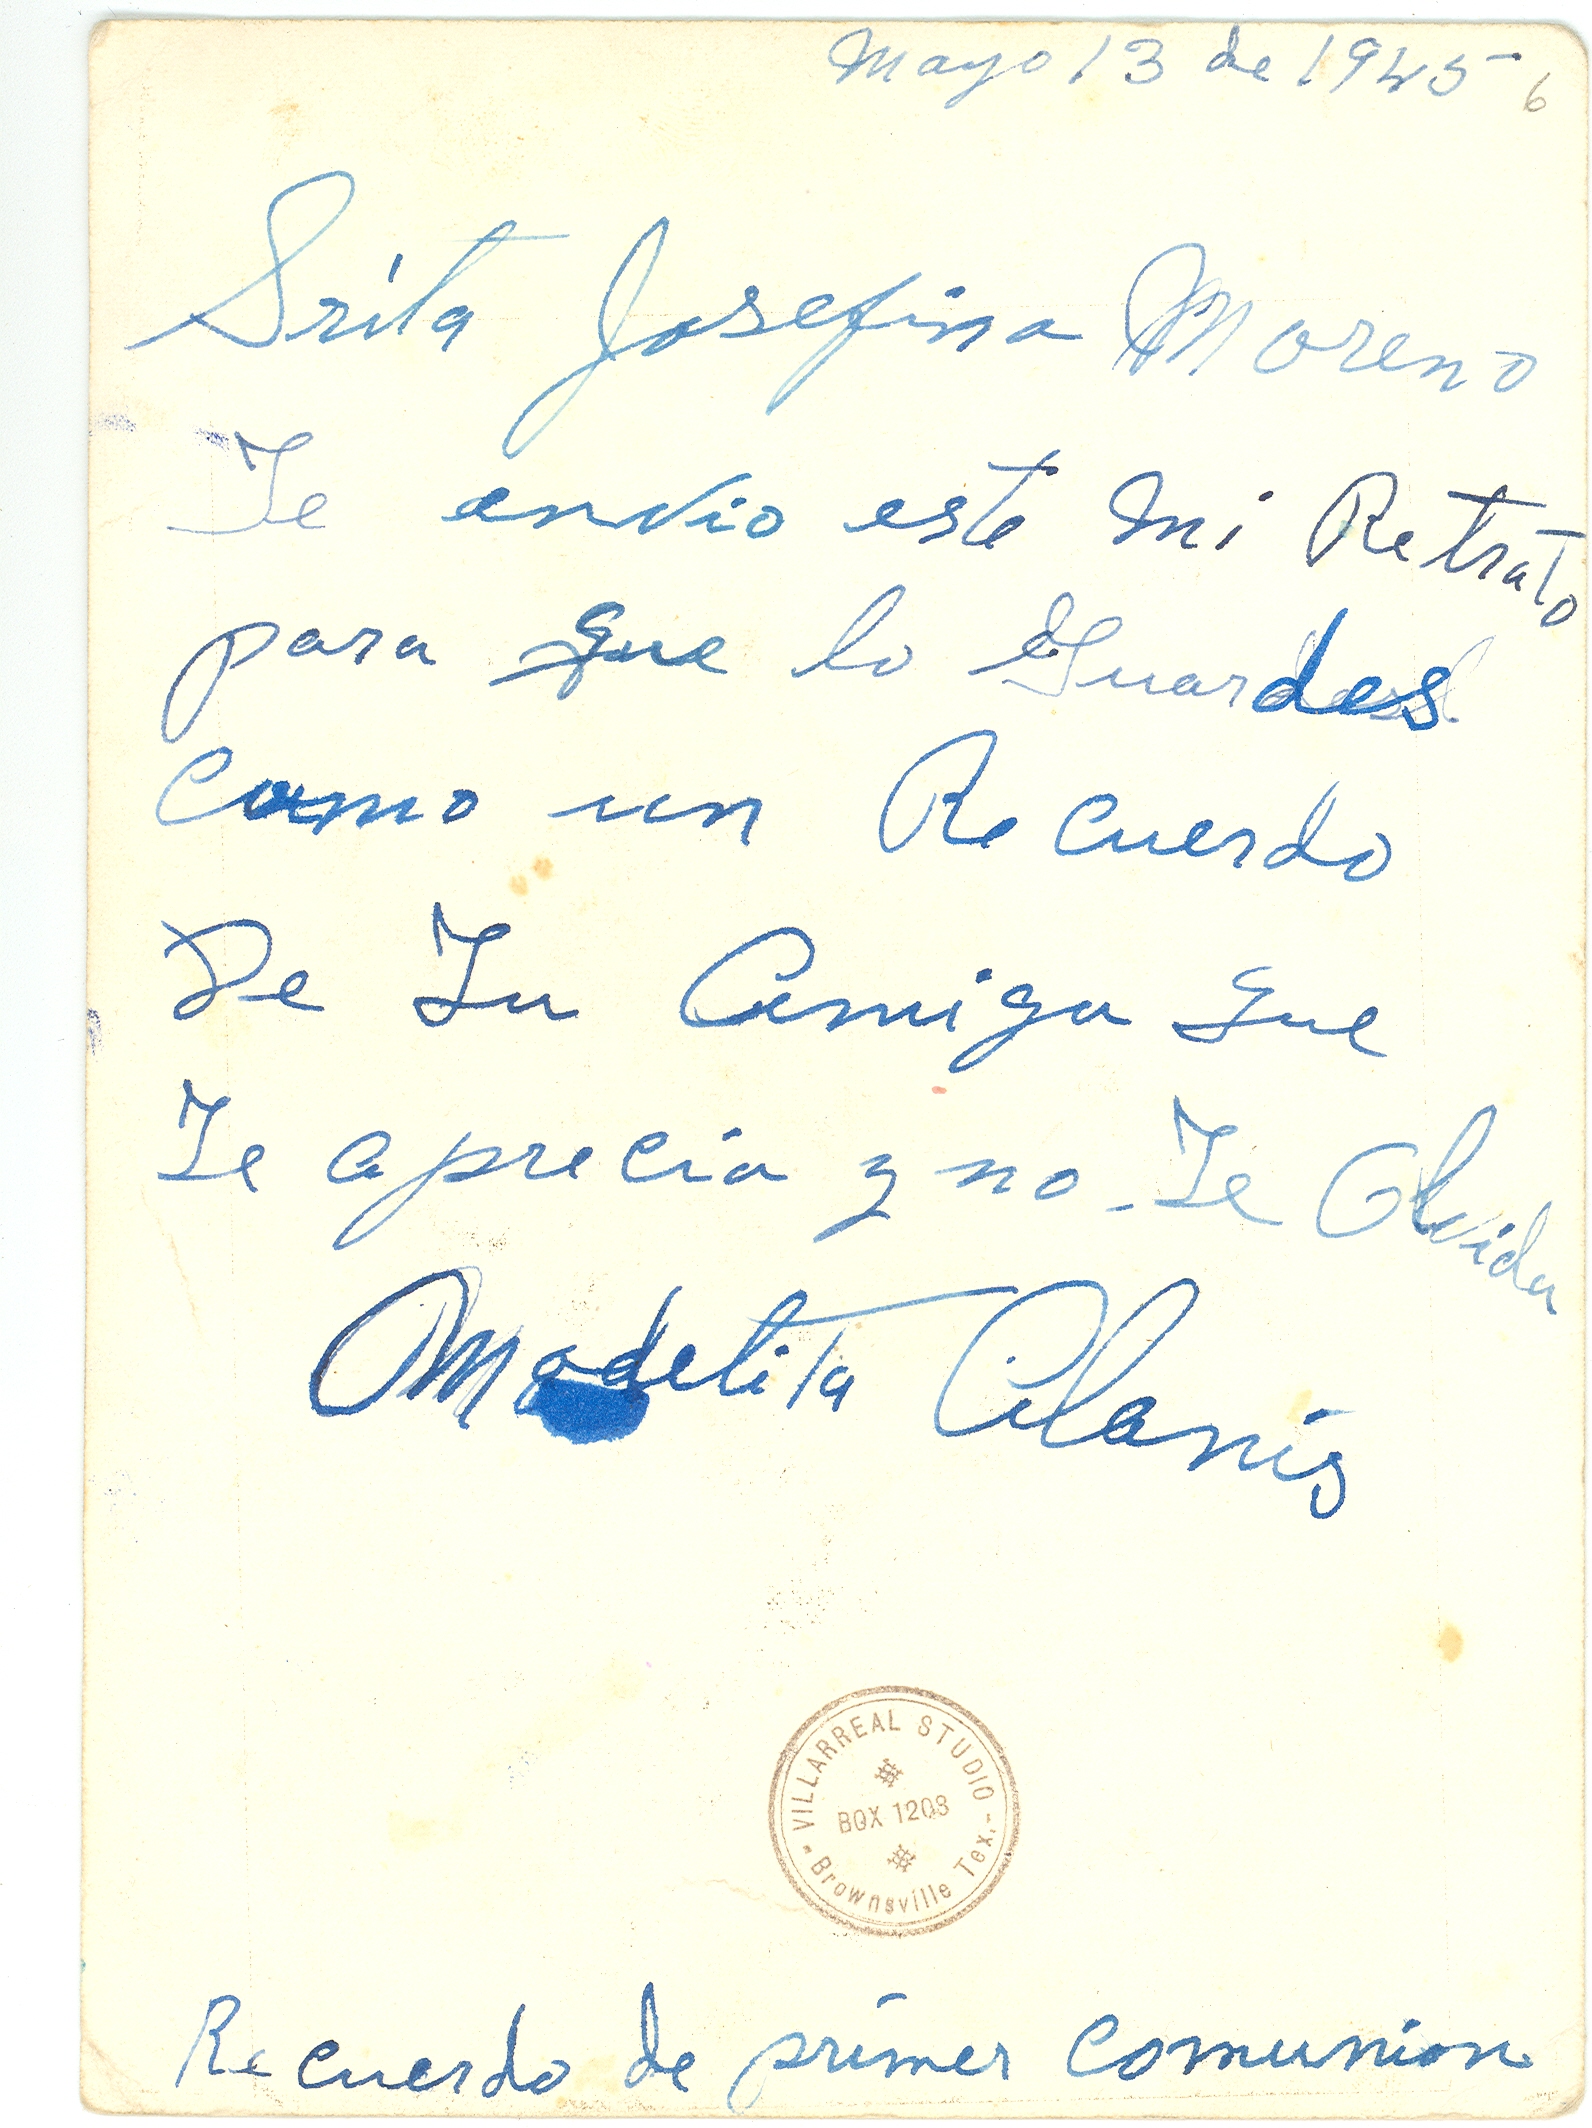 Mayo 13 de 1945
6
Srita Josefina Moreno
Te envio este mi Retrato
para que lo Guardes
Como un Recuerdo
De Tu Amiga que
Te aprecia y no Te Olvida
Madelita Alanis
VILLARREAL STUDIO
BOX 1203
Brownsville Tex.
Recuerdo de primer comunion